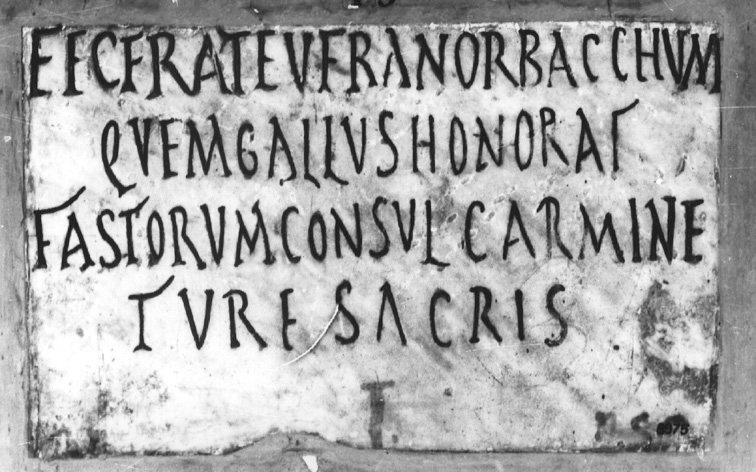 FECERATEVFRANORBACCHVM
QVEMGALLVSHONORAT
FASTORVMCONSVLCARMINE
TVRESACRIS